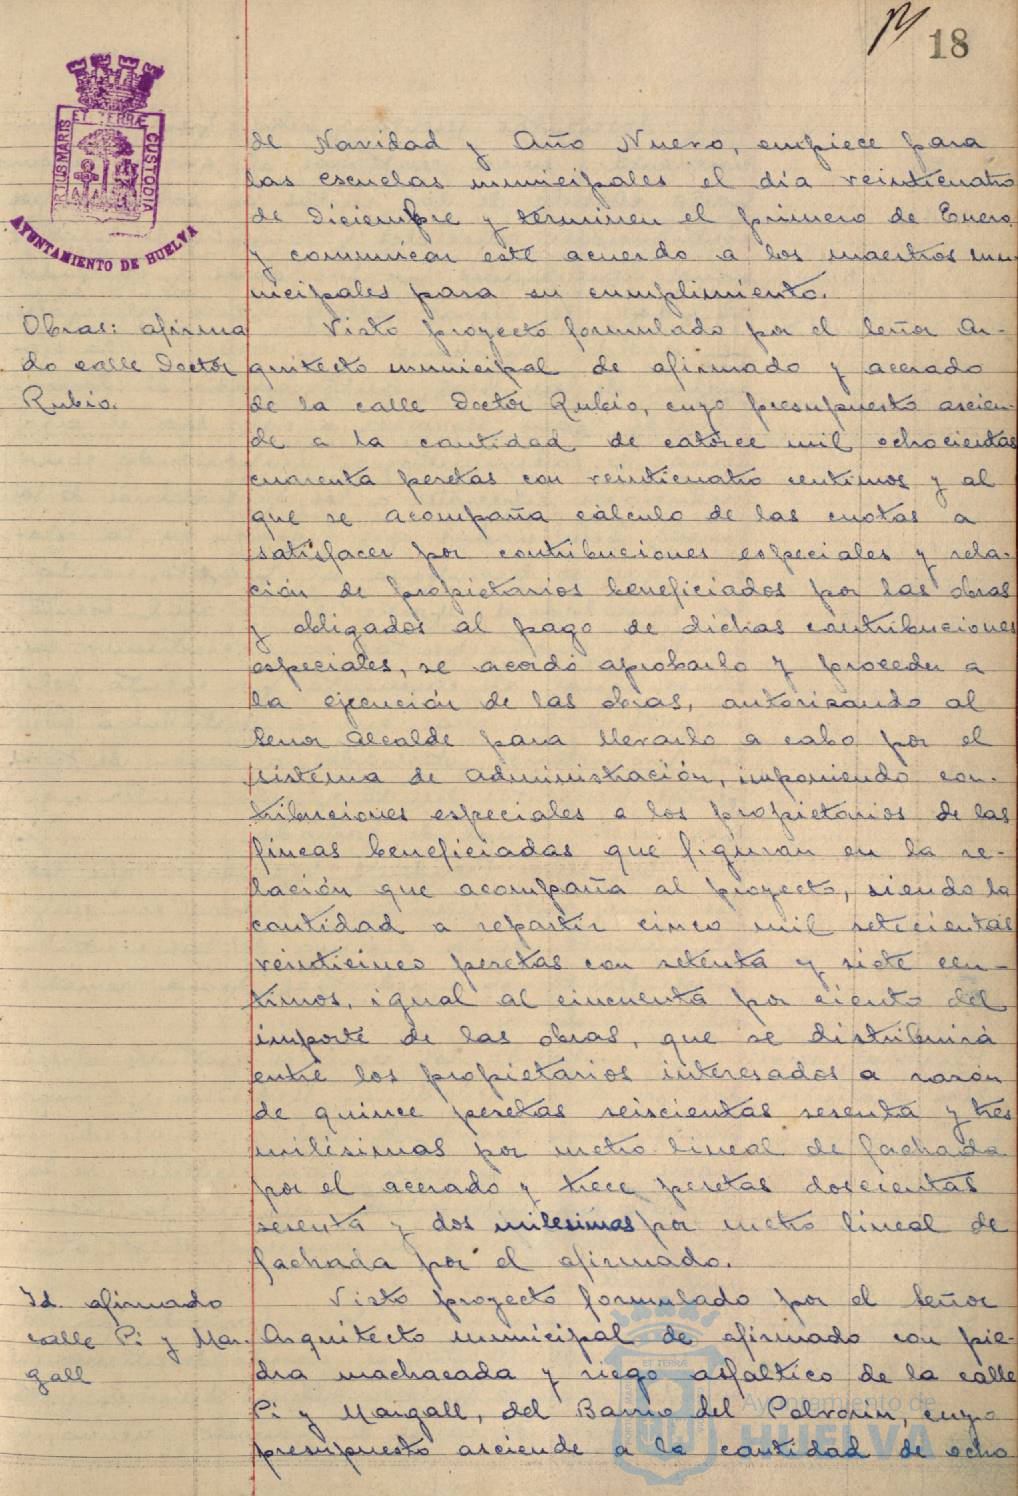 18
PORTUS MARIS ET TERRÆ CUSTODIA
AYUNTAMIENTO DE HUELVA
de Navidad y Año Nuevo, empiece para
las escuelas municipales el día veinticuatro
de Diciembre y terminen el primero de Enero
y comunicar este acuerdo a los maestros mu-
nicipales para su cumplimiento.
Obras: afirma
do calle Doctor
Rubio.
Visto proyecto formulado por el Señor Ar-
quitecto municipal de afirmado y acerado
de la calle Doctor Rubio, cuyo presupuesto ascien-
de a la cantidad de catorce mil ochocientas
cuarenta pesetas con veinticuatro centimos y al
que se acompaña cálculo de las cuotas a
satisfacer por contribuciones especiales y rela-
ción de propietarios beneficiados por las obras
y obligados al pago de dichas contribuciones
especiales, se acordó aprobarlo y proceder a
la ejecución de las obras, autorizando al
Señor Alcalde para llevarlo a cabo por el
sistema de administración, imponiendo con-
tribuciones especiales a los propietarios de las
fincas beneficiadas que figuran en la re-
lación que acompaña al proyecto, siendo la
cantidad a repartir cinco mil setecientas
veinticinco pesetas con setenta y siete cen-
timos, igual al cincuenta por ciento del
importe de las obras, que se distribuirá
entre los propietarios interesados a razón
de quince pesetas seiscientas sesenta y tres
milésimas por metro lineal de fachada
por el acerado y trece pesetas doscientas
sesenta y dos milesimas por metro lineal de
fachada por el afirmado.
Id. afirmado
calle Pi y Mar-
gall
Visto proyecto formulado por el Señor
Arquitecto municipal de afirmado con pie-
dra machacada y riego asfáltico de la calle
Pi y Margall, del Barrio del Polvorin, cuyo
presupuesto asciende a la cantidad de ocho
Ayuntamiento de
HUELVA